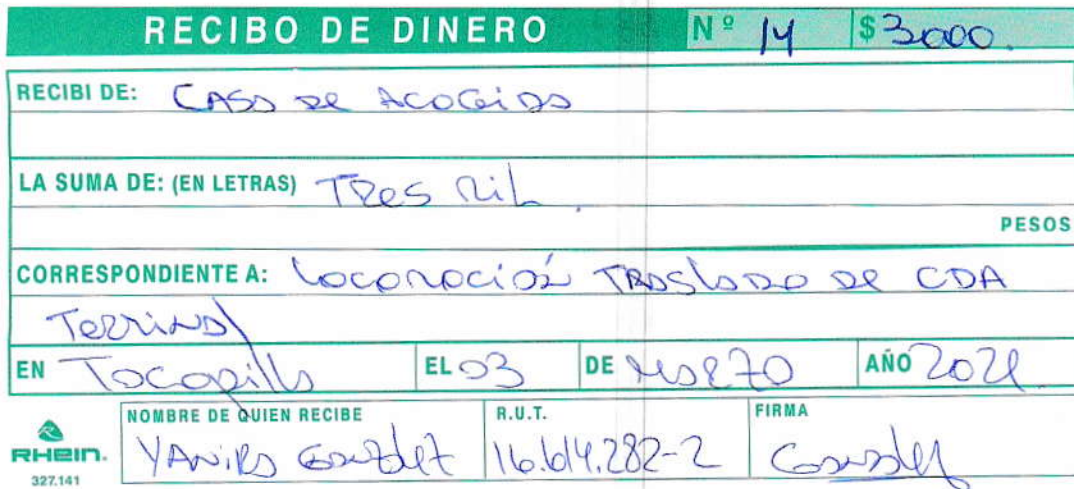 RECIBO DE DINERO Nº 14 $3000.
RECIBI DE: CASA DE ACOGIDA
LA SUMA DE: (EN LETRAS) TRES MIL.
PESOS
CORRESPONDIENTE A: LOCOMOCIÓN TRASLADO DE CDA
TERMINAL
EN TOCOPILLA EL 03 DE MARZO AÑO 202
NOMBRE DE QUIEN RECIBE R.U.T. FIRMA
YANIRA González 16.614.282-2 González
RHEIN.
327.141